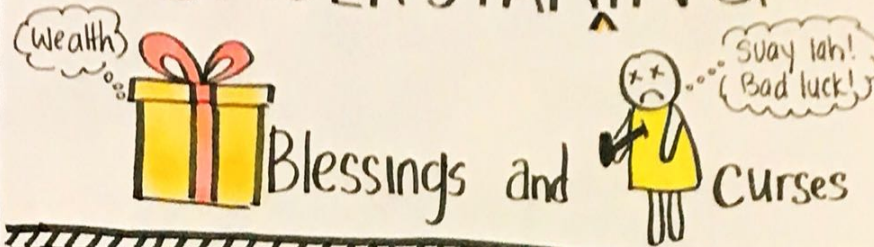 (Wealth)
Suay lah!
Bad luck!
Blessings and Curses